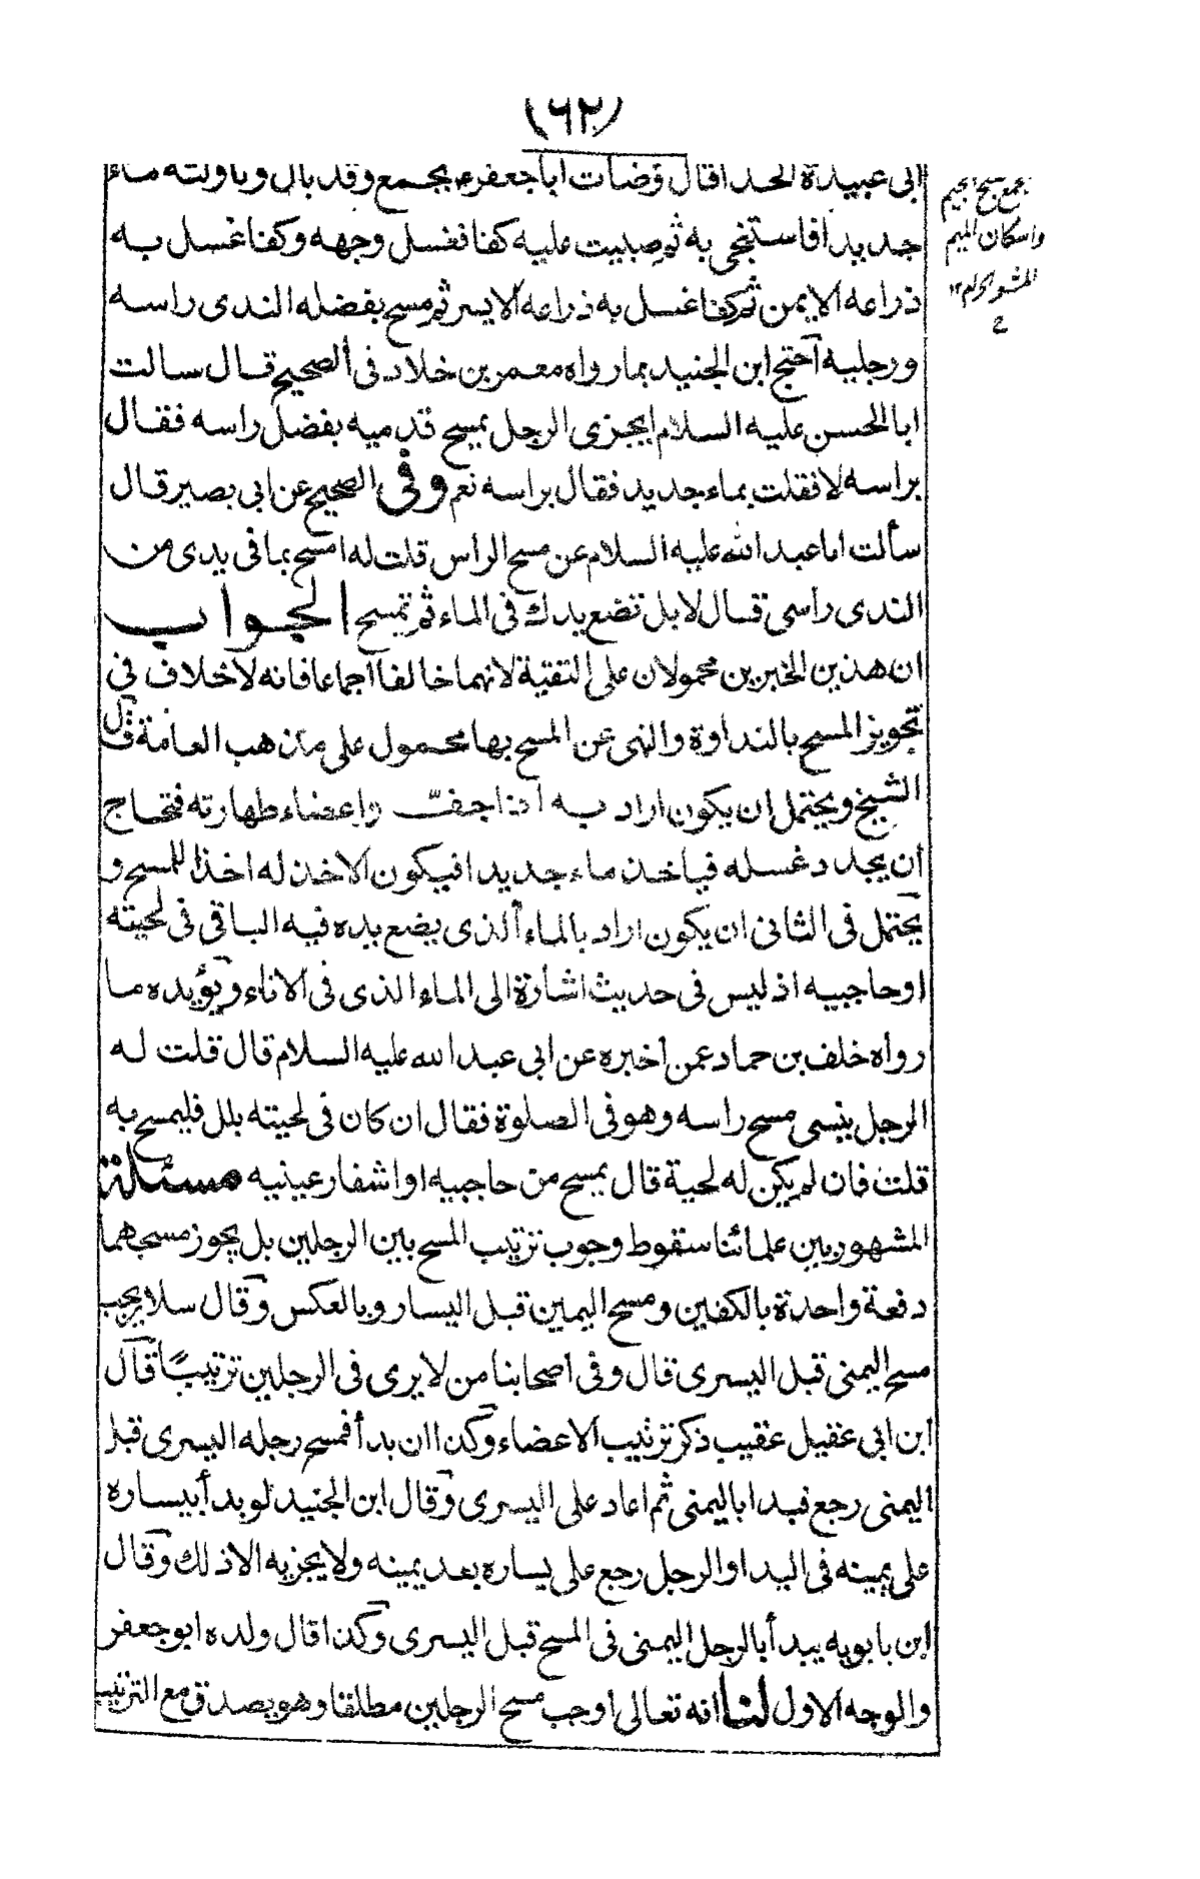 (٦٢)
ابى عبيدة الحذا قال وضات ابا جعفر ع بجمع وقد بال وناولته ماء
جديدا فاستنجى به ثم صببت عليه كفا فغسل وجهه وكفا غسل به
ذراعه الايمن ثم كفا غسل به ذراعه الايسر ثم مسح بفضله الندى راسه
ورجليه احتج ابن الجنيد بما رواه معمر بن خلاد فى الصحيح قال سالت
ابا الحسن عليه السلام ايجزى الرجل يمسح قدميه بفضل راسه فقال
براسه لا فقلت بماء جديد فقال براسه نعم وفى الصحيح عن ابى بصير قال
سألت ابا عبد الله عليه السلام عن مسح الراس قلت له امسح بما فى يدى من
الندى راسى قال لا بل تضع يدك فى الماء ثم تمسح الجواب
ان هذين الخبرين محمولان على التقية لانهما خالفا اجماعا فانه لا خلاف فى
تجويز المسح بالنداوة والنهى عن المسح بها محمول على مذهب العامة قال
الشيخ ويحتمل ان يكون اراد به اذا جفّت اعضاء طهارته فتحاج
ان يجدد غسله فياخذ ماء جديدا فيكون الاخذ له اخذا للمسح و
يحتمل فى الثانى ان يكون اراد بالماء الذى يضع يده فيه الباقى فى لحيته
او حاجبيه اذ ليس فى حديث اشارة الى الماء الذى فى الاناء ويؤيده ما
رواه خلف بن حماد عمن اخبره عن ابى عبد الله عليه السلام قال قلت له
الرجل ينسى مسح راسه وهو فى الصلوة فقال ان كان فى لحيته بلل فليمسح به
قلت فان لم يكن له لحية قال يمسح من حاجبيه او اشفار عينيه مسئلة
المشهور بين علمائنا سقوط وجوب ترتيب المسح بين الرجلين بل يجوز مسحهما
دفعة واحدة بالكفين ومسح اليمين قبل اليسار وبالعكس وقال سلار يجب
مسح اليمنى قبل اليسرى قال وفى اصحابنا من لا يرى فى الرجلين ترتيبًا قال
ابن ابى عقيل عقيب ذكر ترتيب الاعضاء وكذا ان بدأ فمسح رجله اليسرى قبل
اليمنى رجع فبدا باليمنى ثم اعاد على اليسرى وقال ابن الجنيد لو بدأ بيساره
على يمينه فى اليد او الرجل رجع على يساره بعد يمينه ولا يجزيه الا ذلك وقال
ابن بابويه يبدأ بالرجل اليمنى فى المسح قبل اليسرى وكذا قال ولده ابو جعفر
والوجه الاول لنا انه تعالى اوجب مسح الرجلين مطلقا وهو يصدق مع الترتيب
بجمع بفتح الجيم
واسكان الميم
المشعر الحرام ١٢